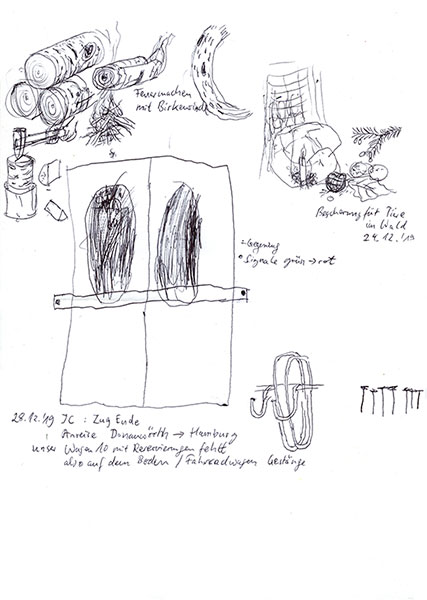 Feuermachen
mit Birkenrinde
Bescherung für Tiere
im Wald
24.12.'19
Begegnung
Signale grün → rot
28.12.'19 IC : Zug Ende
Anreise Donauwörth → Hamburg
unser Wagen 10 mit Reservierungen fehlt
also auf dem Boden / Fahrradwagen Gestänge